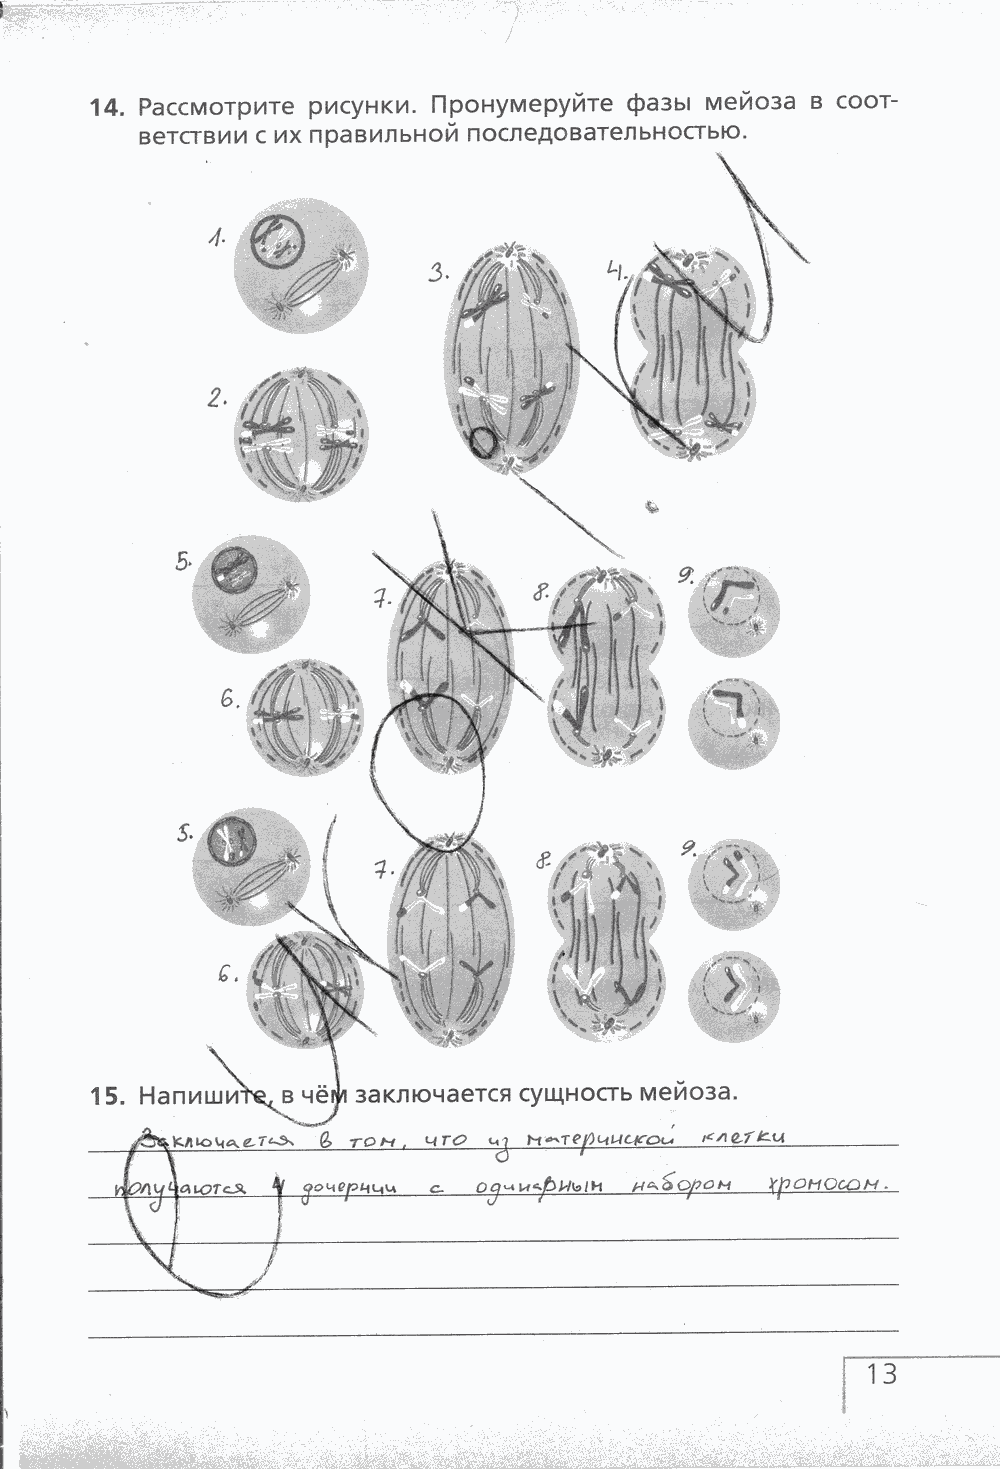 14. Рассмотрите рисунки. Пронумеруйте фазы мейоза в соот-
ветствии с их правильной последовательностью.
1.
3.
4.
2.
5.
7.
8.
9.
6.
5.
7.
8.
9.
6.
15. Напишите, в чём заключается сущность мейоза.
Заключается в том, что из материнской клетки
получаются 4 дочернии с одинарным набором хромосом.
13